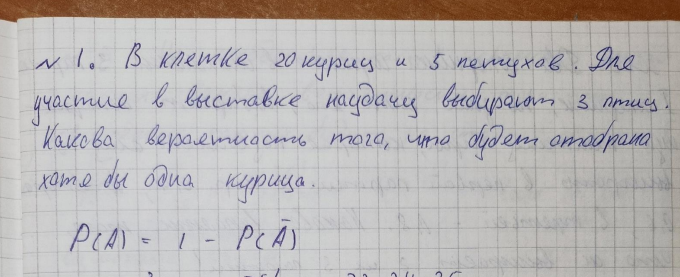 № 1. В клетке 20 куриц и 5 петухов. Для
участие в выставке наудачу выбирают 3 птиц.
Какова вероятность того, что будет отобрана
хотя бы одна курица.
P(A) = 1 - P(Ā)